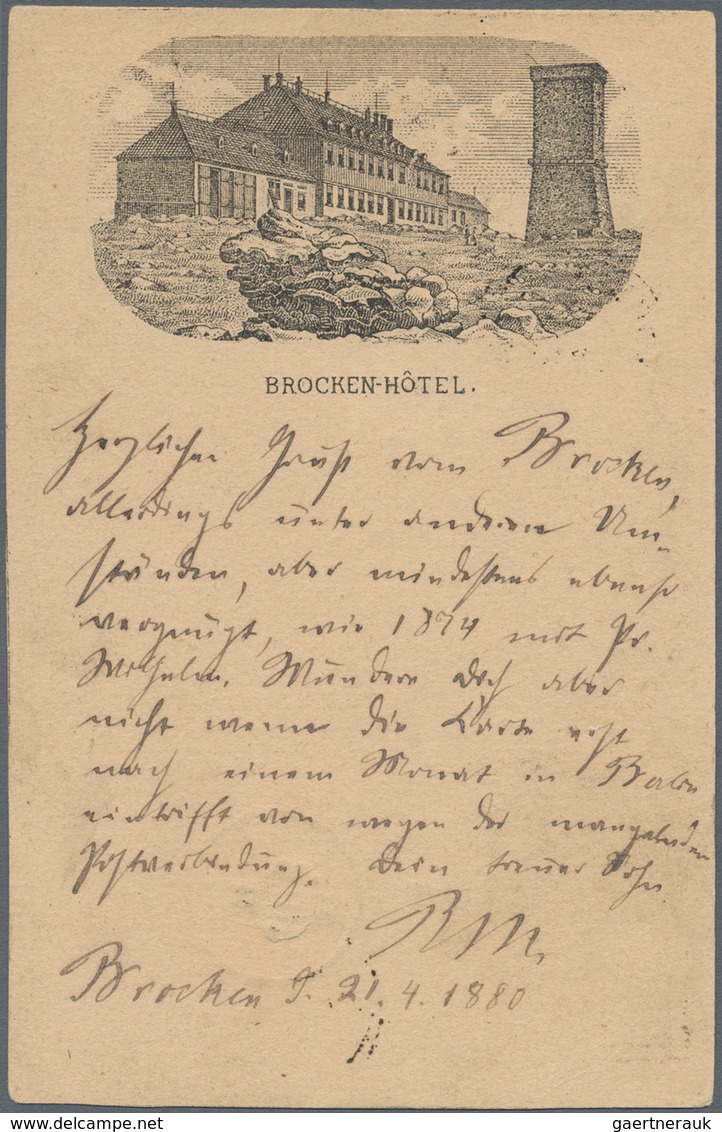 BROCKEN-HÔTEL.
Herzlichen Gruß vom Brocken,
allerdings unter anderen Um-
ständen, aber mindestens ebenso
vergnügt, wie 1874 mit Pr.
Wilhelm. Wundere Dich aber
nicht wenn die Karte erst
nach einem Monat in
eintrifft von wegen der mangelnden
Postverbindung. Dein treuer Sohn
Brocken 21. 4. 1880
gaertnerauk